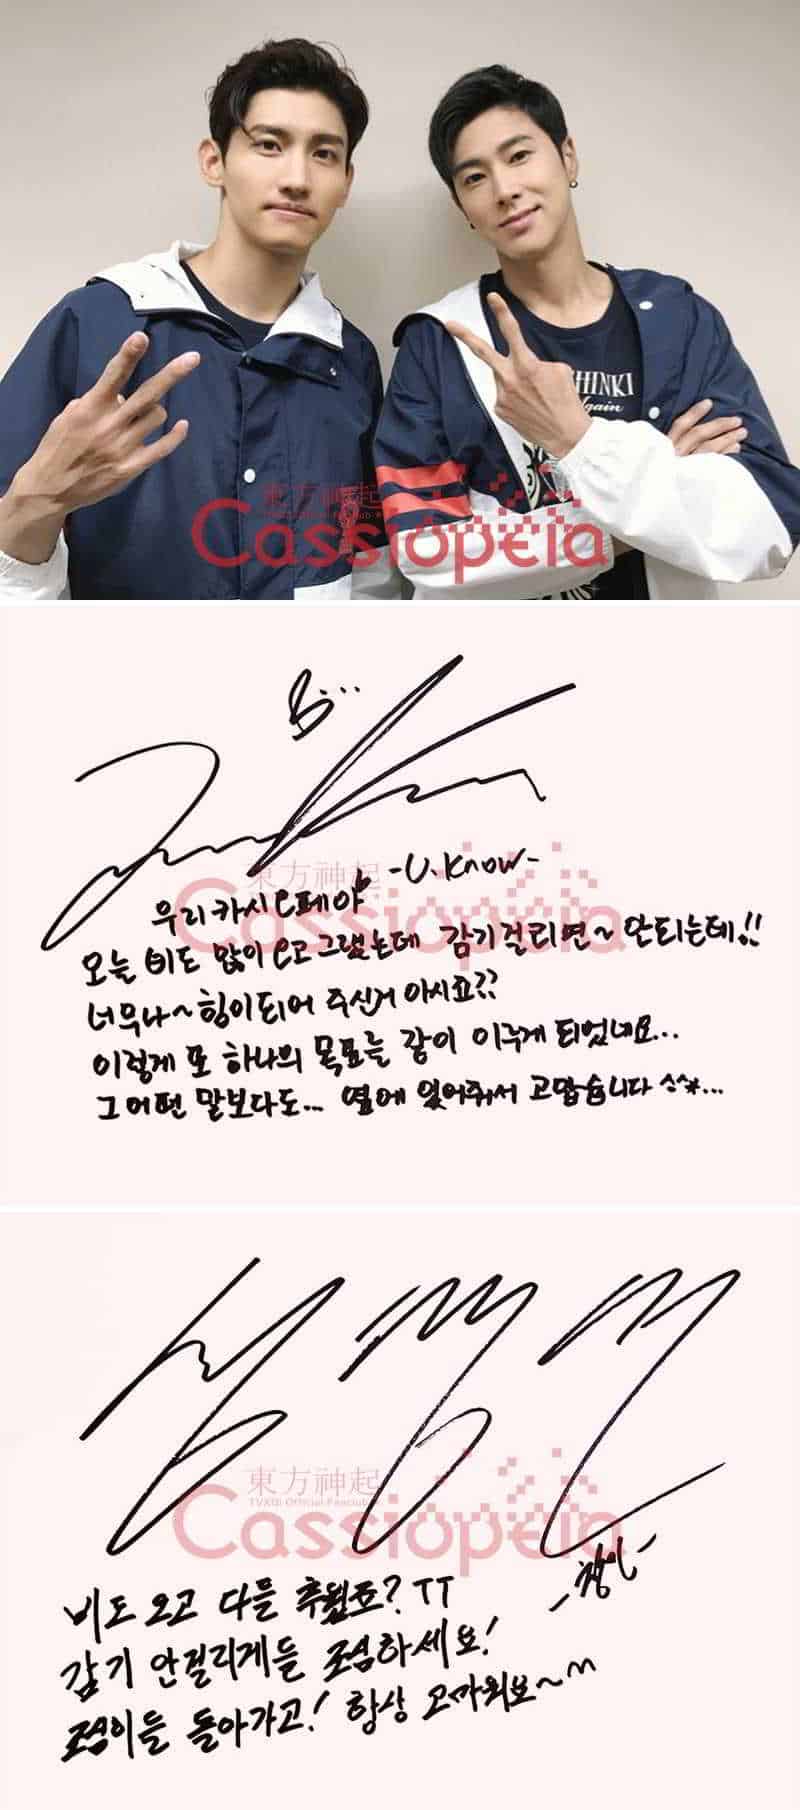 SHINKI
Again
東方神起
TVXQ! Official Fanclub
Cassiopeia
-U.Know-
東方神起
Cassiopeia
우리 카시오페야
오늘 비도 많이 오고 그랬는데 감기 걸리면~ 안되는데!!
너무나~ 힘이 되어 주신거 아시죠??
이렇게 또 하나의 목표를 같이 이루게 되었네요...
그 어떤 말보다도... 옆에 있어줘서 고맙습니다 ^^*...
東方神起
TVXQ! Official Fanclub
Cassiopeia
-창민-
비도 오고 다들 추웠죠? TT
감기 안걸리게들 조심하세요!
조심이들 돌아가고! 항상 고마워요~^^